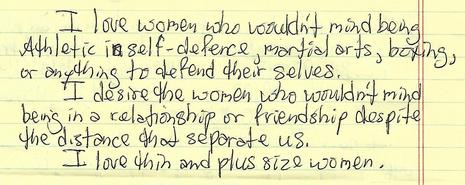 I love women who wouldn't mind being
Athletic in self-defence, martial arts, boxing,
or anything to defend their selves.
I desire the women who wouldn't mind
being in a relationship or friendship despite
the distance that separate us.
I love thin and plus size women.